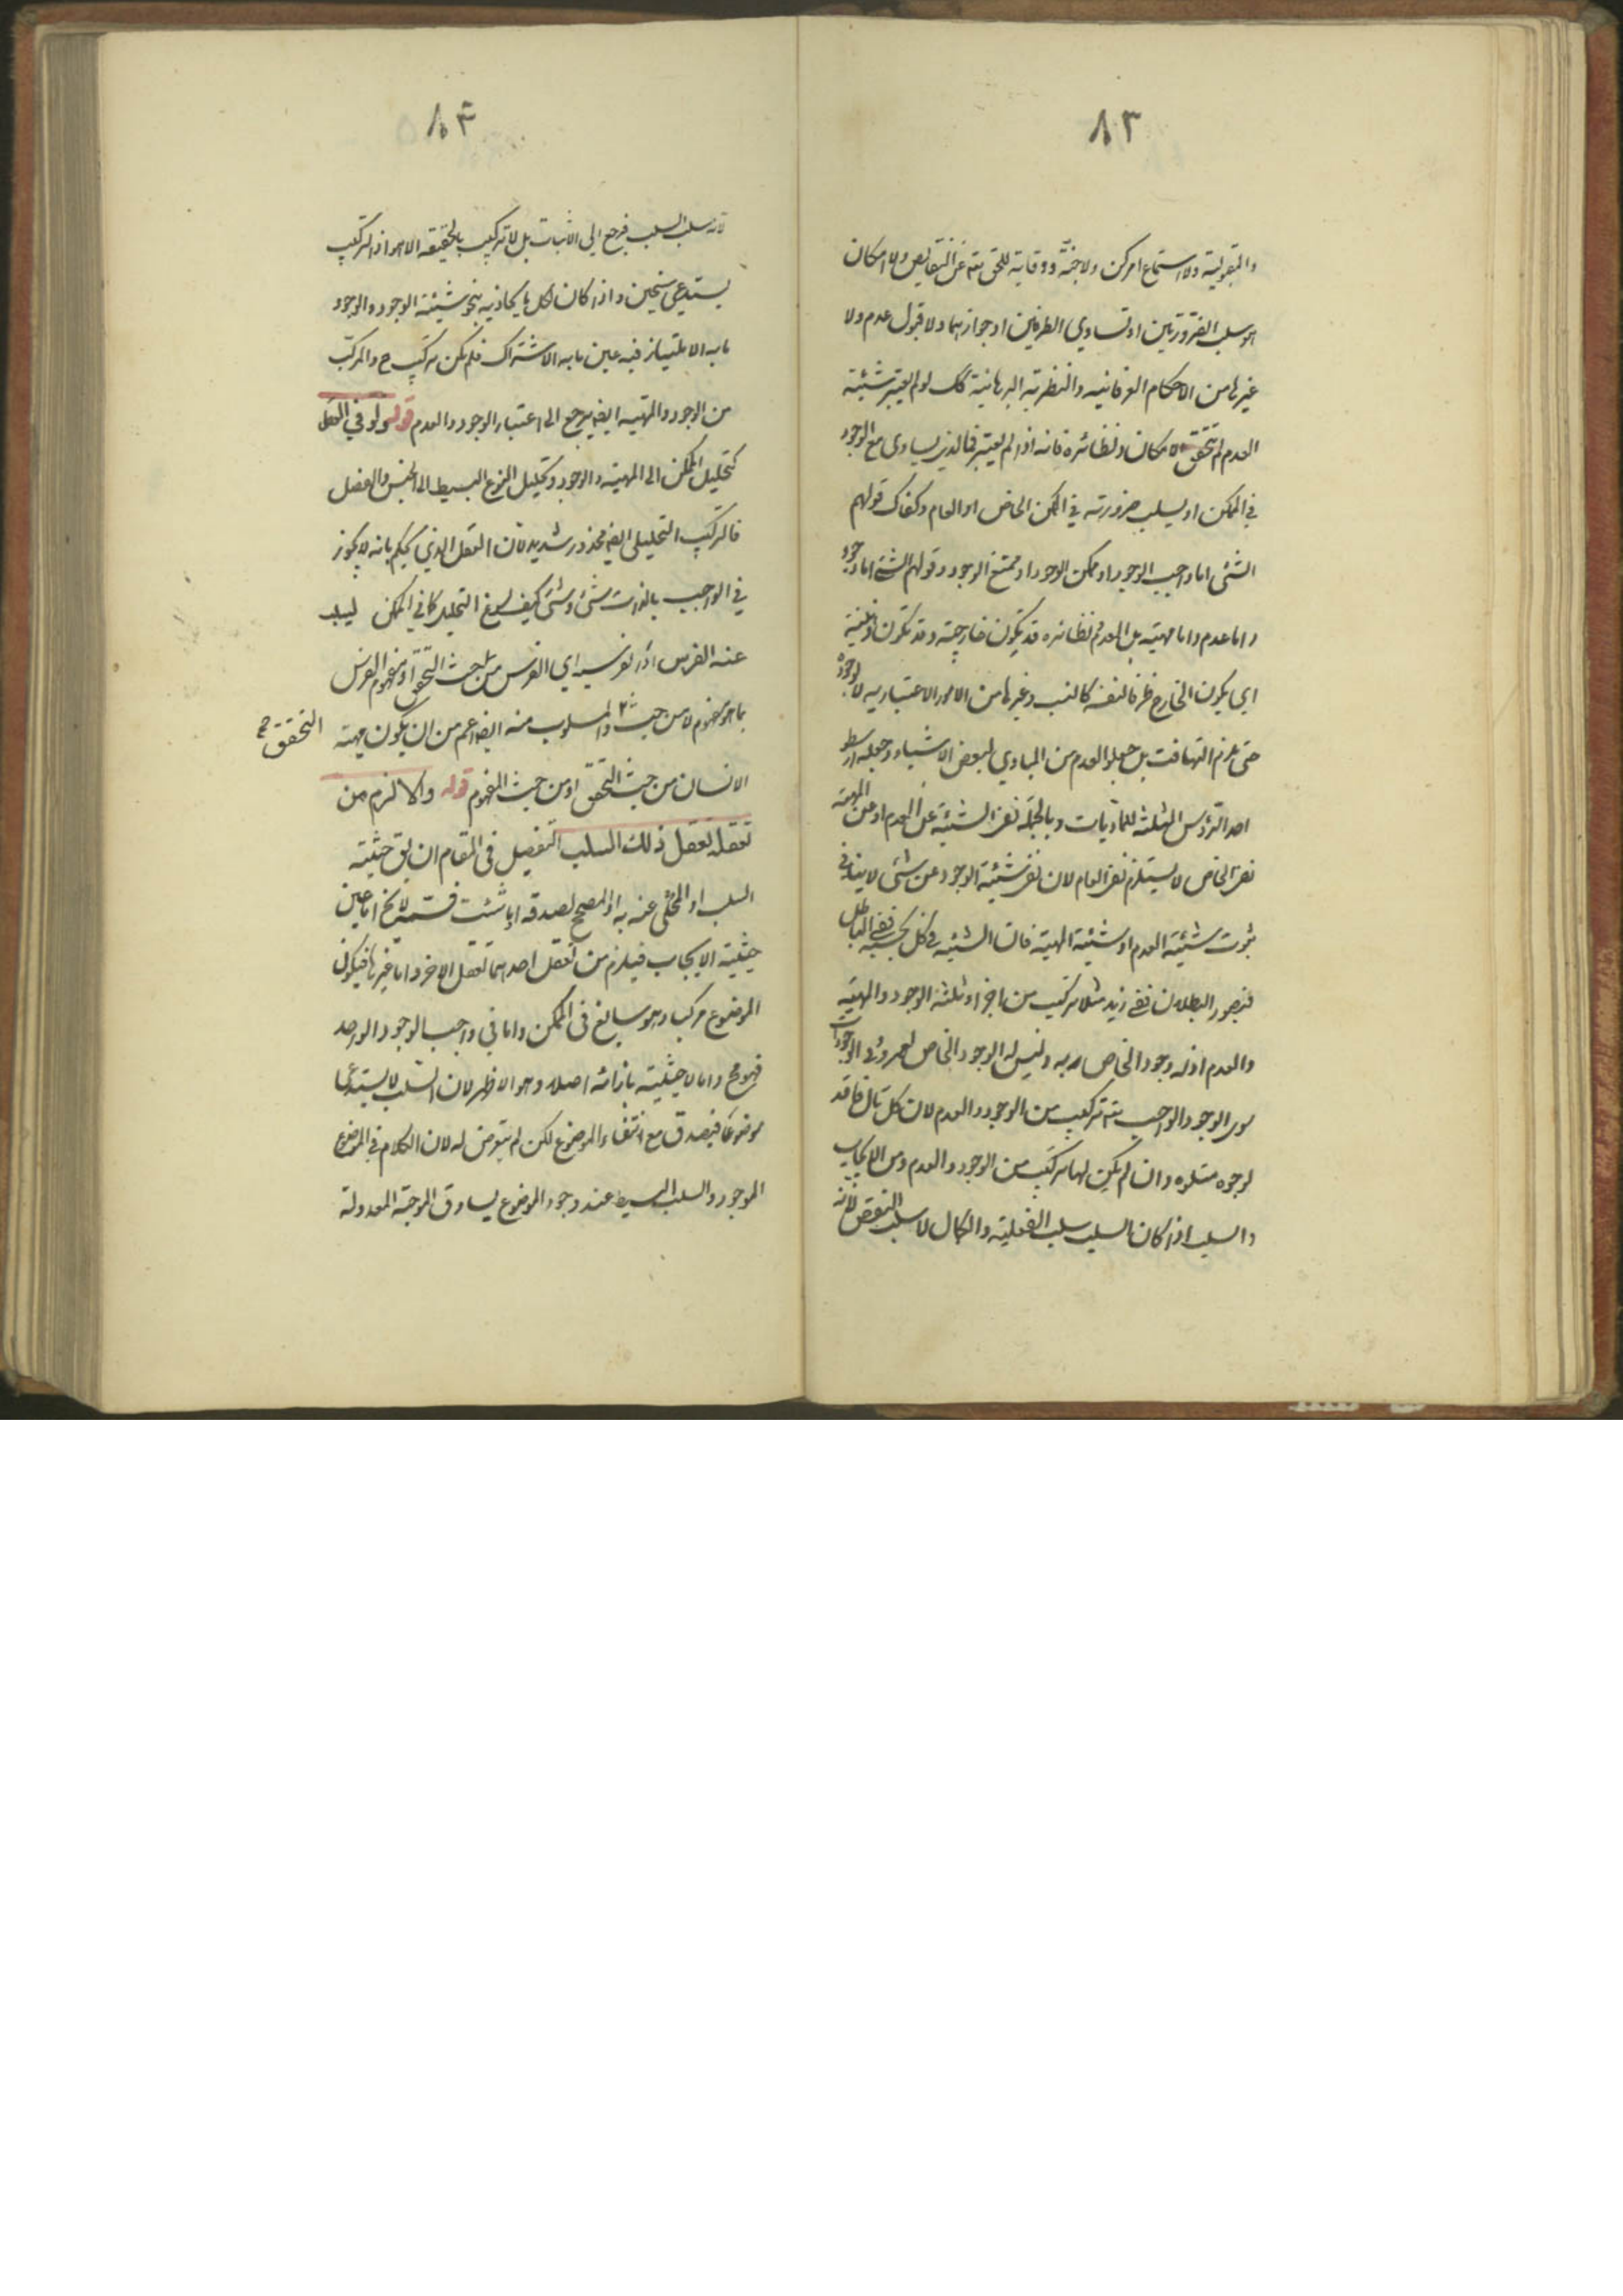 ٨٣
والقبولية ولا استماع امر كن ولا جنّة ووقاية للحق يتم عن النقايص ولا امكان
هو سلب الضرورتين او تساوي الطرفين او جوازهما ولا قبول عدم ولا
غيرها من الاحكام العرفانيه والنظرية البرهانية كك لو لم يعتبر شيئية
العدم لم يتحقق الامكان ونظائره فانه اذا لم يعتبر فما الذي يساوى مع الوجود
في الممكن او يسلب ضرورته في الممكن الخاص او العام وكفاك قولهم
الشئ اما واجب الوجود او ممكن الوجود او ممتنع الوجود وقولهم الشئ اما وجود
واما عدم واما مهية بل العدم ونظائره قد يكون خارجية وقد تكون ذهنية
اي يكون الخارج ظرفا لنفسه كالنسب وغيرها من الامور الاعتباريه لا لوجوده
حتى يلزم التهافت بل جعلوا العدم من المبادي لبعض الاشياء وجعله ارسطو
احد الرؤس الثلثه للماديات وبالجملة نفى الشيئية على العدم او عن المهية
نفى الخاص لا يستلزم نفى العام لان نفى شيئية الوجود عن شئ لا ينافى
ثبوت شيئية العدم او شيئية المهية فان الشيئية في كل بحسبه ففي الباطل
فبصور البطلان ففي زيد مثلا تركيب من اجزاء ثلثة الوجود والمهية
والعدم اذ له وجود الخاص به وليس له الوجود الخاص لعمرو وفي الوجودات
سوى الوجود الواجب يتم تركيب من الوجود والعدم لان كل تال فاقد
لوجود متلوه وان لم يكن لها تركيب من الوجود والعدم ومن الايجاب
والسلب اذا كان السلب سلب الفعلية والكمال لا سلب النقص لانه
٨٤
لانه سلب السلب فيرجع الى الاثبات بل لا تركيب بالحقيقه الا هو اذ التركيب
يستدعى سنخين واذا كان لكل ما يحاذيه بنحو شيئية الوجود والوجود
ما به الامتياز فيه عين ما به الاشتراك فلم يكن تركيب ح والمركب
من الوجود والمهيه ايضا يرجع الى اعتبار الوجود والعدم قوله ولو في العقل
كتحليل الممكن الى المهية والوجود وتحليل النوع البسيط الى الجنس والفصل
فالتركيب التحليلى ايضا محذور شديد لان العقل الذي يحكم بانه لا يجوز
في الواجب بالذات شئ وشئ كيف يسوغ التحليل كما في الممكن ليسلب
عنه الفرس او لا فرسيه اي الفرس من حيث التحقق او مفهوم الفرس
بما هو مفهوم لا من حيث والمسلوب منه ايضا اعم من ان يكون مهية
التحقق صح
الانسان من حيث التحقق او من حيث المفهوم قوله والا لزم من
تعقله تعقل ذلك السلب التفصيل فى المقام ان يق حيثية
السلب او المحكى عنه به او المصحح لصدقه ما شئت فسمه لا يخ اما عين
حيثية الايجاب فيلزم من تعقل احدهما تعقل الاخر واما غيرها فيكون
الموضوع مركبا وهو سايغ فى الممكن واما في واجب الوجود الواحد
فهو مح واما لا حيثية بازائه اصلا وهو الاظهر لان السلب لا يستدعى
موضوعا فيصدق مع انتفاء الموضوع لكن لم يتعرض له لان الكلام في الموضوع
الموجود والسلب البسيط عند وجود الموضوع يساوق الموجبة المعدولة